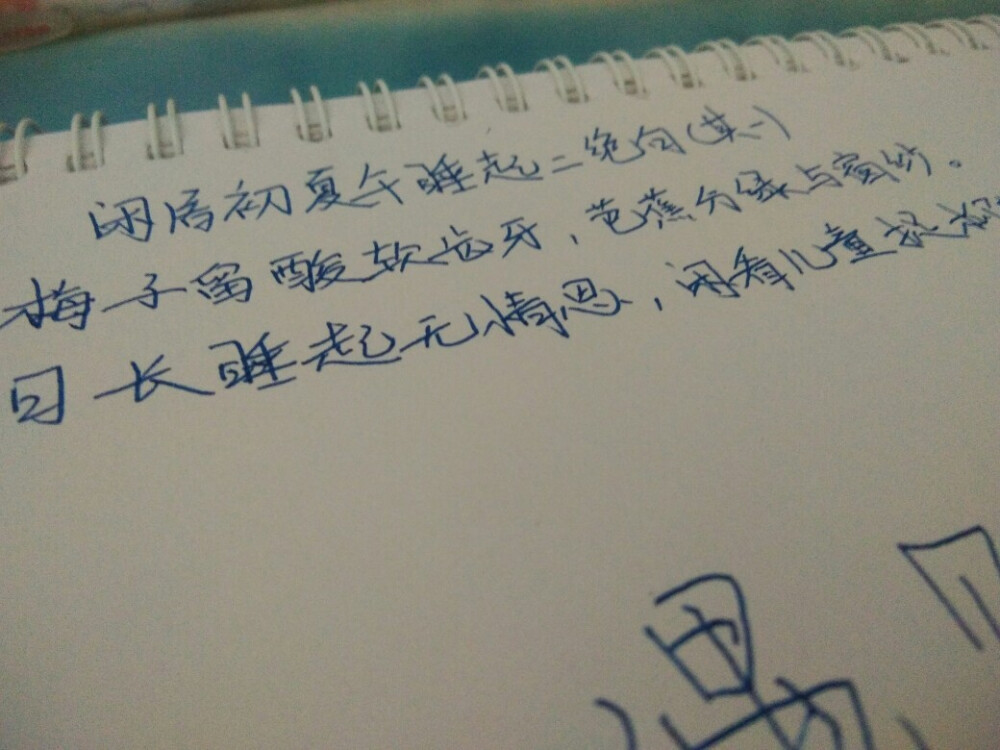 闲居初夏午睡起二绝句(其一)
梅子留酸软齿牙,芭蕉分绿与窗纱。
日长睡起无情思,闲看儿童捉柳